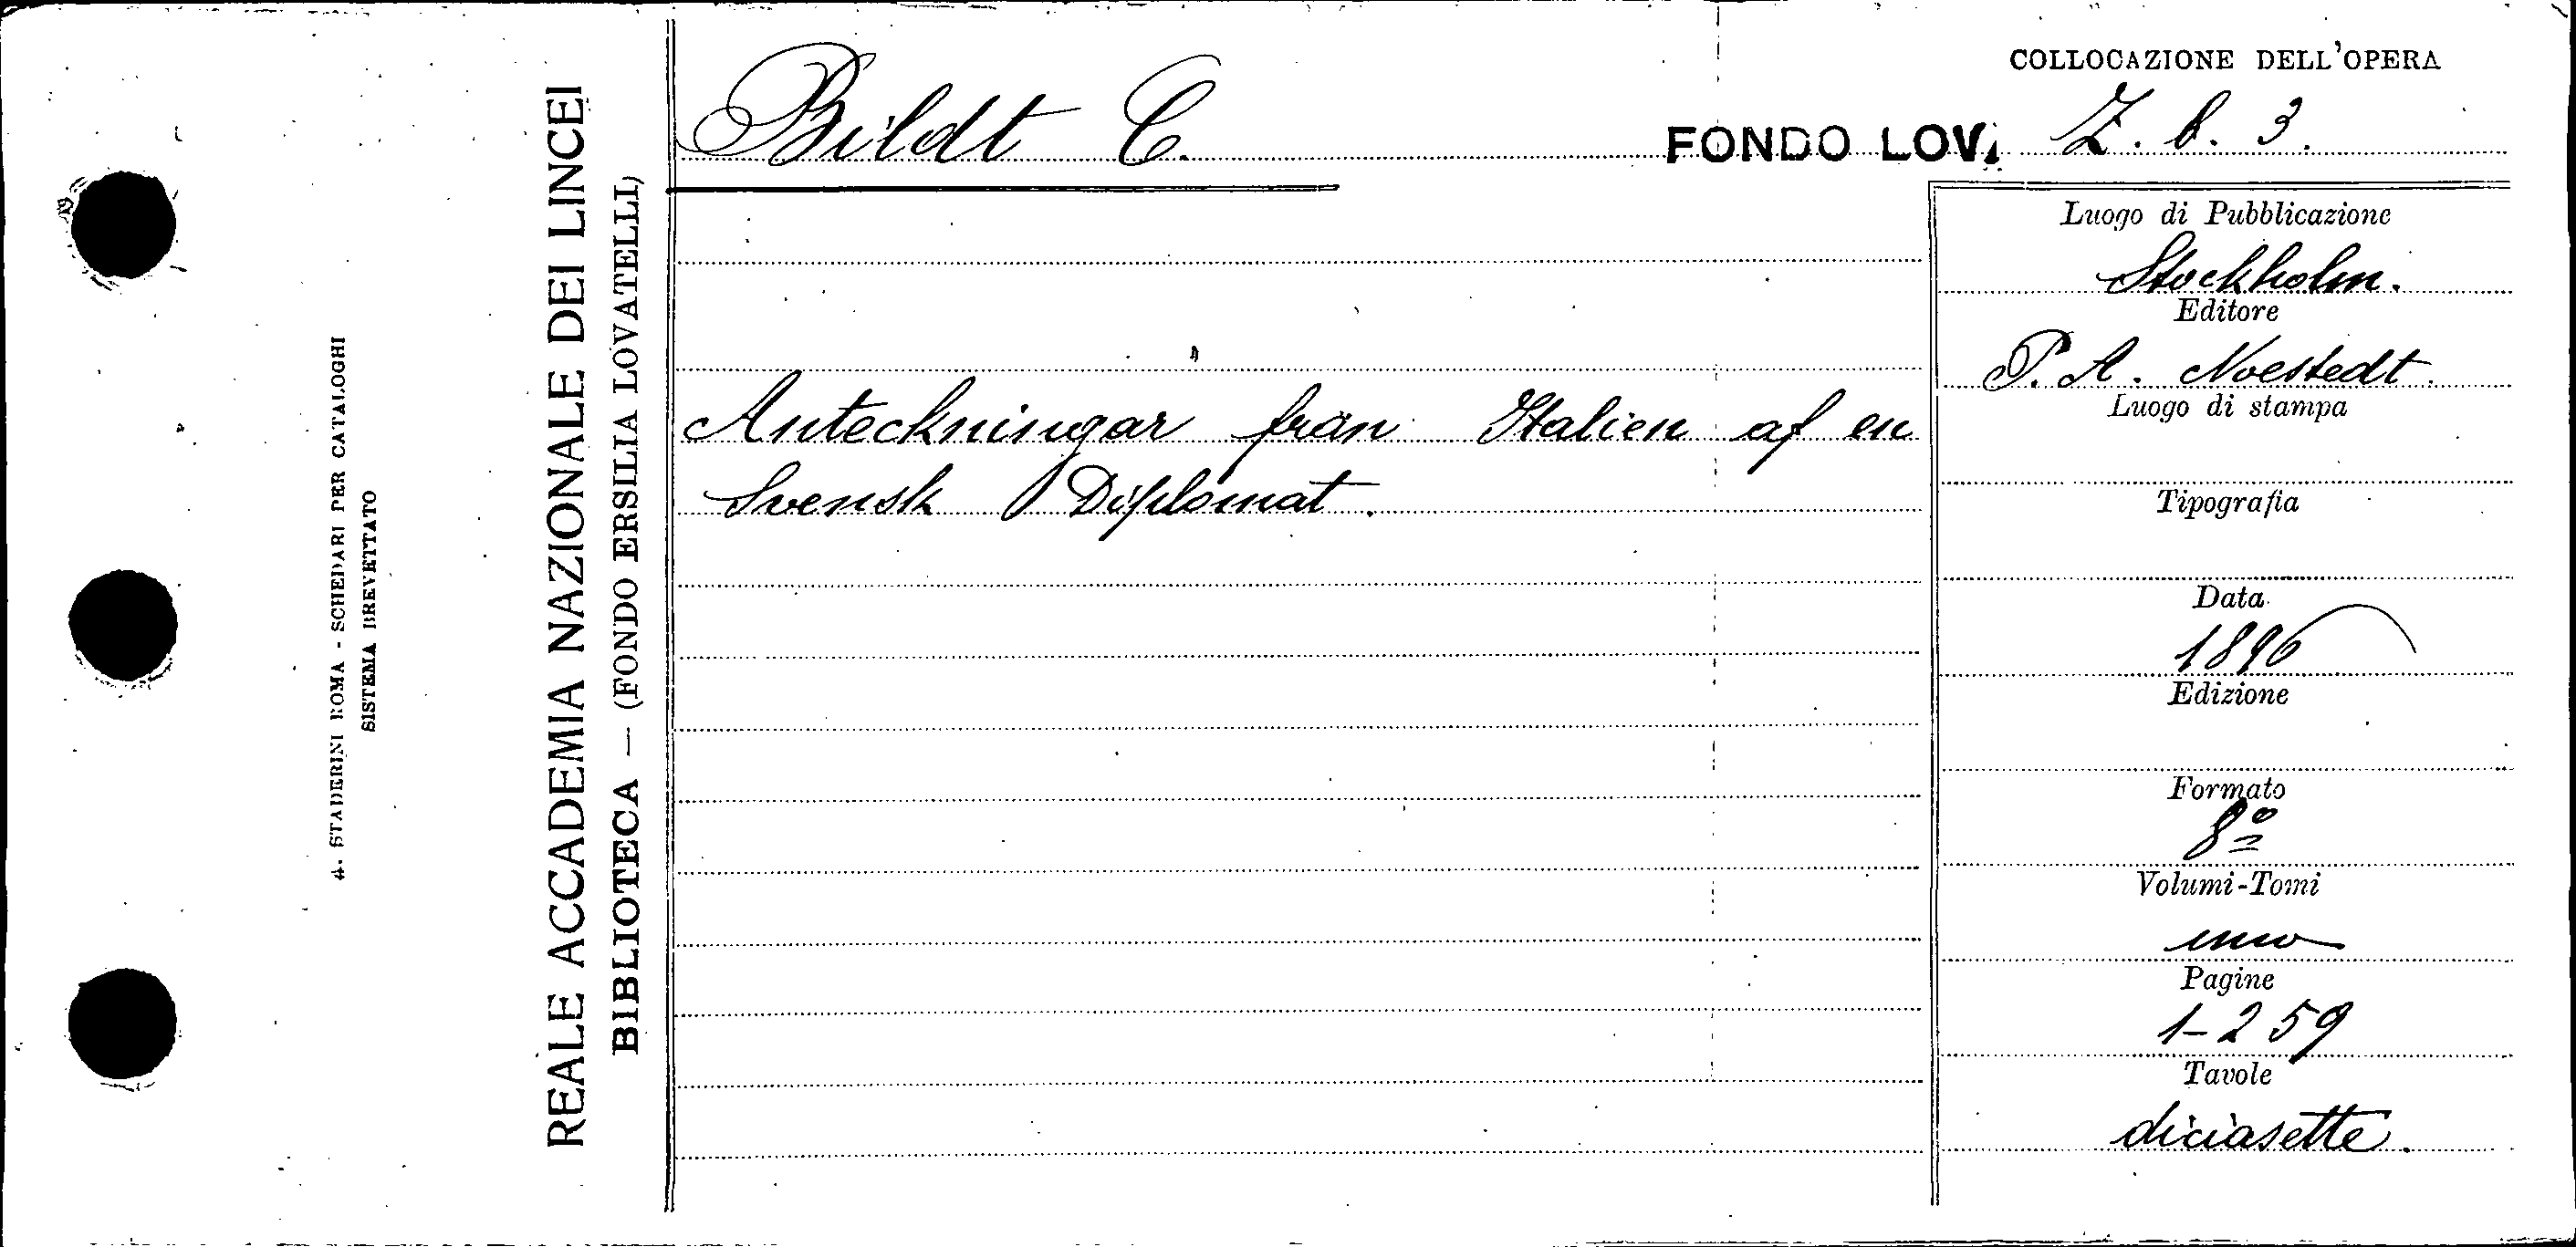 COLLOCAZIONE DELL'OPERA
Bildt C.
FONDO LOV. Z. b. 3.
Anteckningar från Italien af en
Svensk Diplomat.
Luogo di Pubblicazione
Stockholm.
Editore
P. A. Noestedt.
Luogo di stampa
Tipografia
Data
1896
Edizione
Formato
8º
Volumi-Tomi
uno
Pagine
1-259
Tavole
diciasette.
REALE ACCADEMIA NAZIONALE DEI LINCEI
BIBLIOTECA — (FONDO ERSILIA LOVATELLI)
4. STADERINI ROMA - SCHEDARI PER CATALOGHI
SISTEMA BREVETTATO